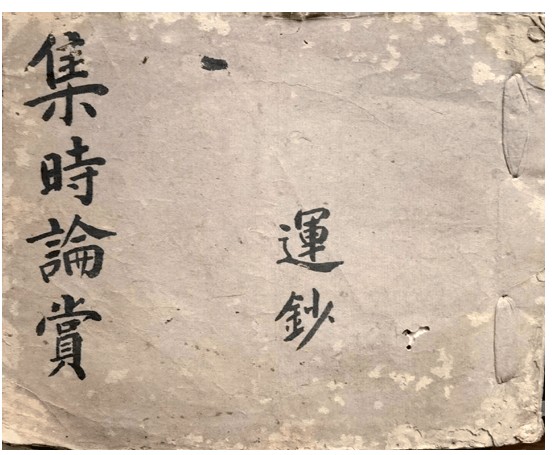 集時論賞
運鈔